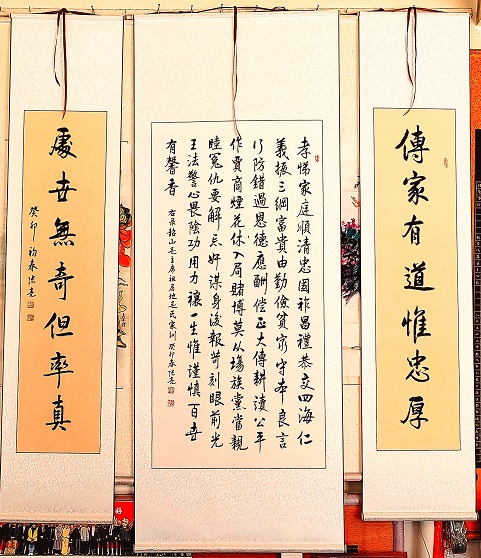 傳家有道惟忠厚
孝悌家庭順清忠國祚昌禮恭交四海仁
義振三綱富貴由勤儉貧窮守本良言
行防錯過恩德應酬偿正大傳耕讀公平
作賈商煙花休入局賭博莫从場族黨當親
睦冤仇要解忘奸謀身後報苛刻眼前光
王法警心畏陰功用力禳一生惟謹慎百世
有馨香
右录韶山毛主席祖居地毛氏家訓 癸卯春法亮
處世無奇但率真
癸卯初春法亮